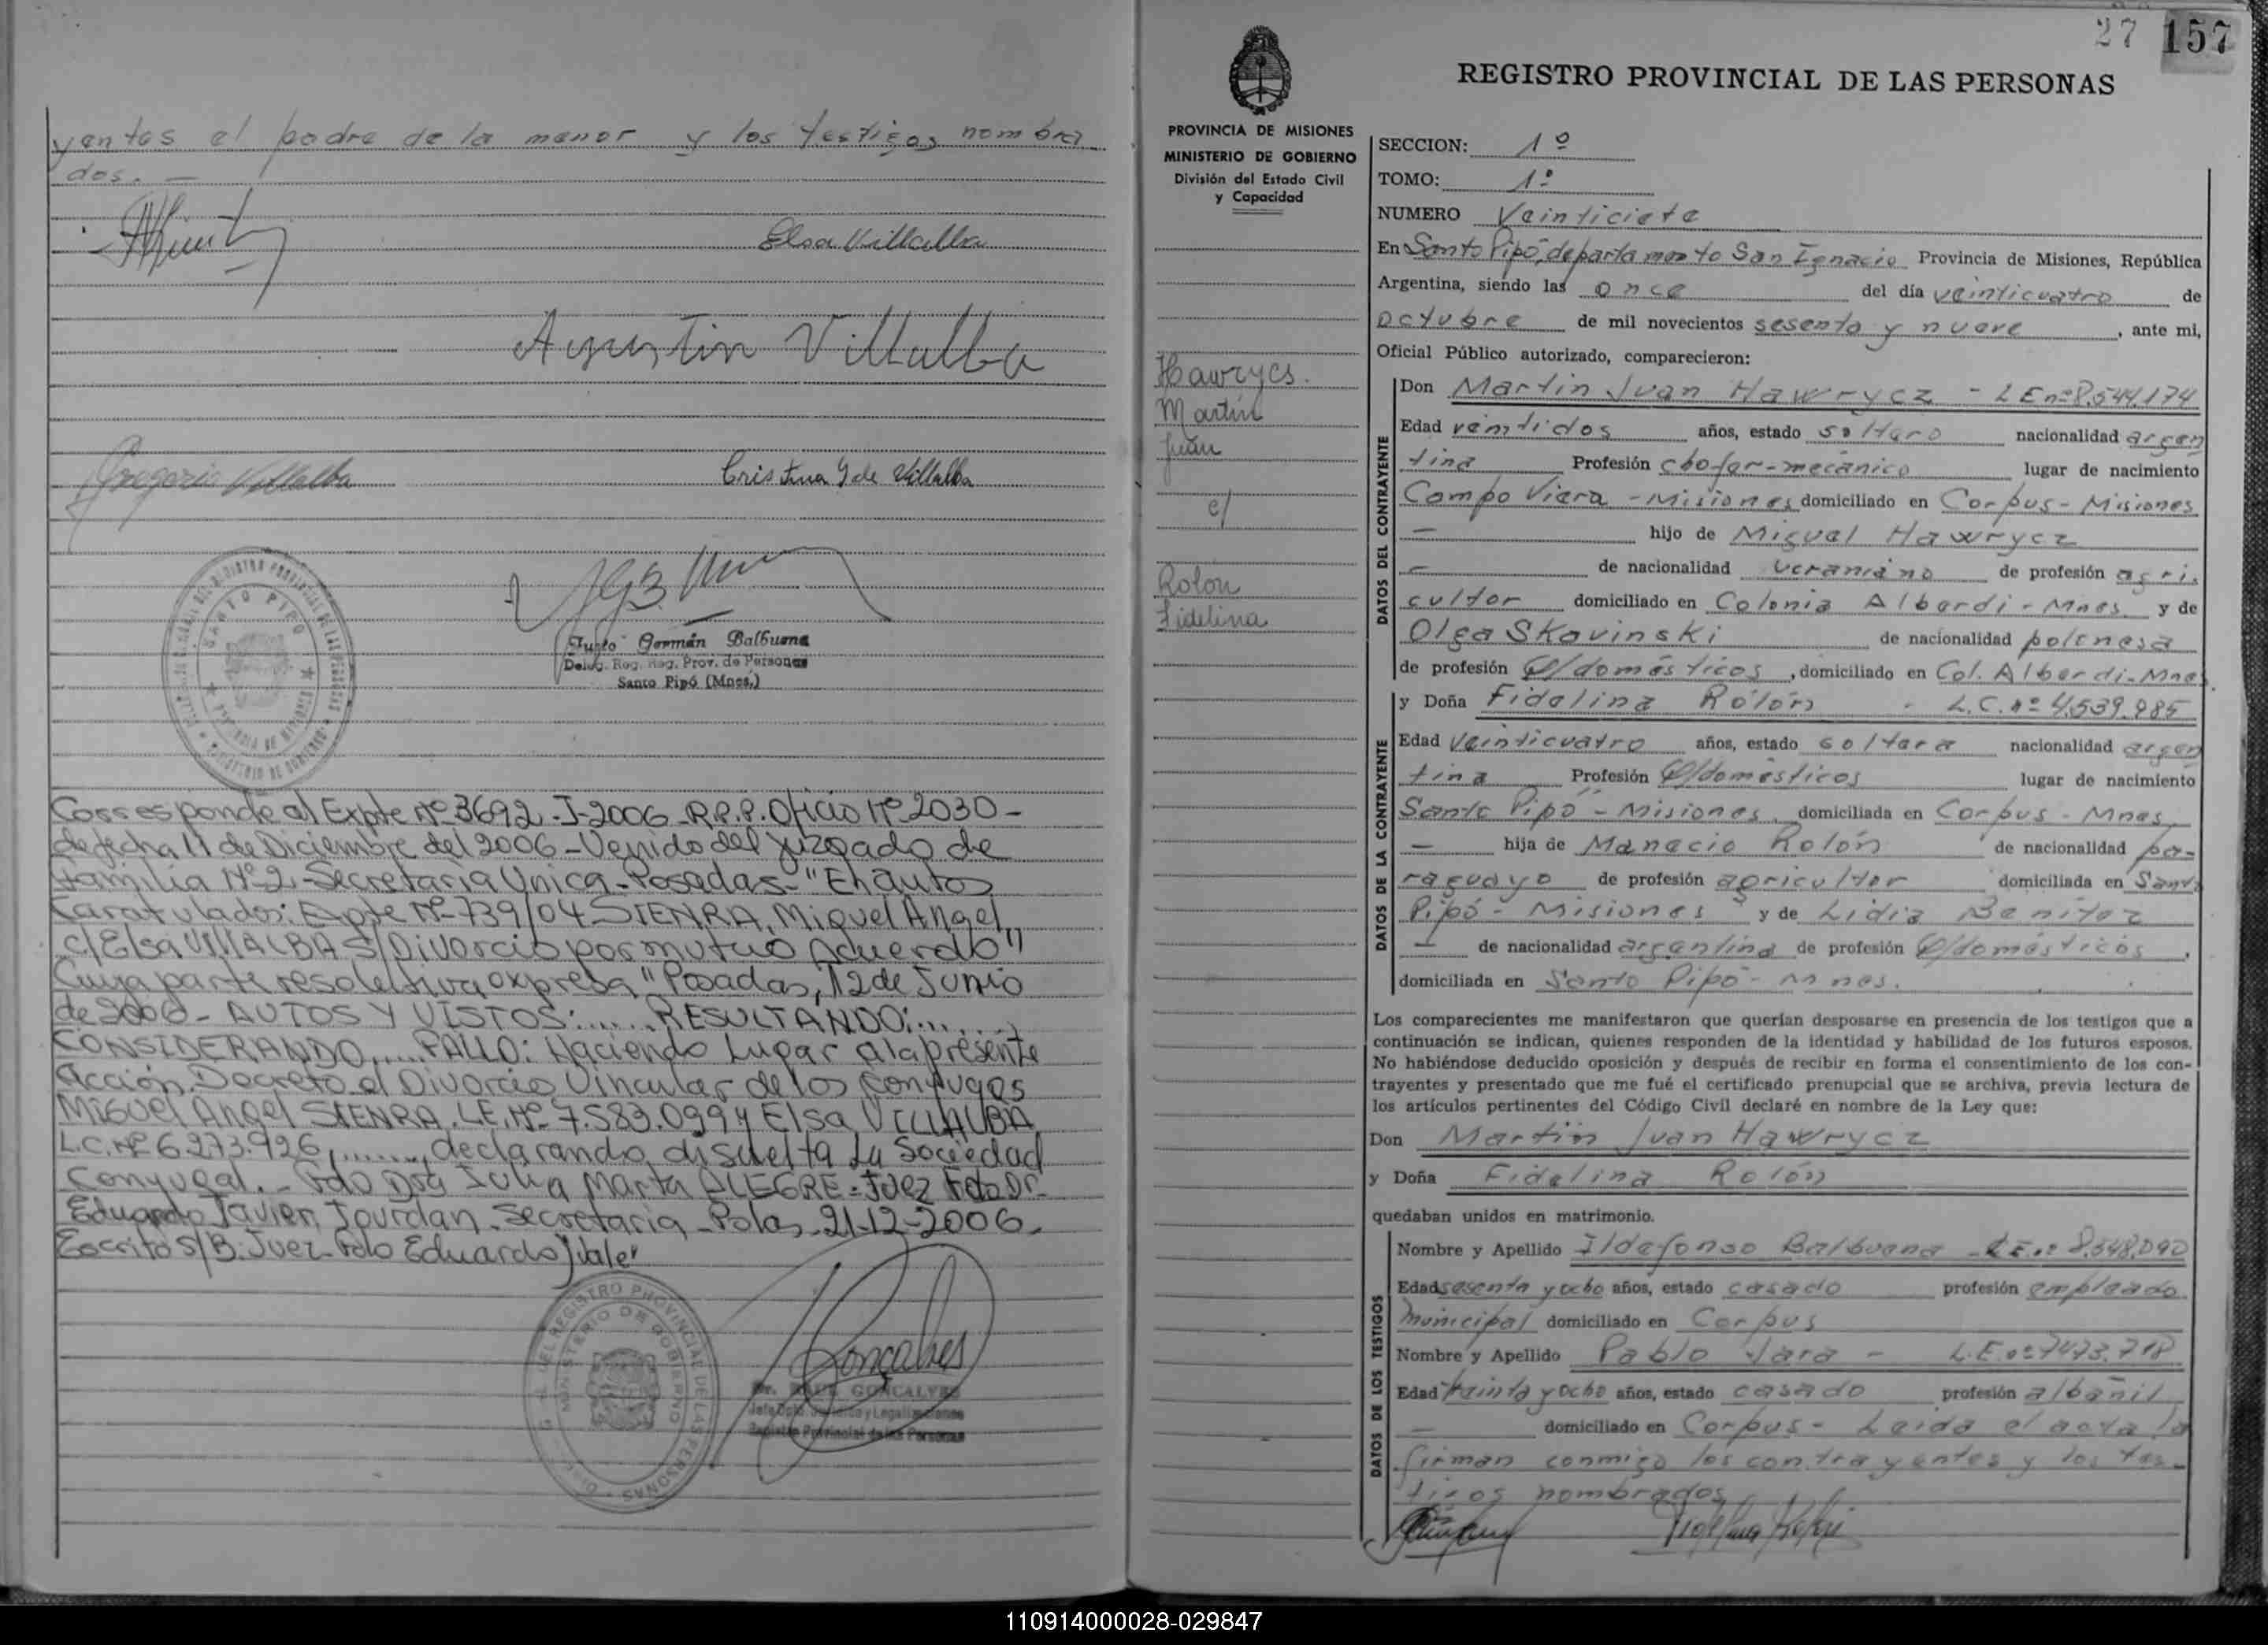 yentes el padre de la menor y los testigos nombra
dos. —
Elsa Villalba
Agustin Villalba
Gregorio Villalba
Cristina G de Villalba
Justo Germán Balbuena
Deleg. Reg. Prov. de Personas
Santo Pipó (Mnes.)
Corresponde al Expte Nº 3692-J-2006-R.P.P. Oficio Nº 2030-
de fecha 11 de Diciembre del 2006-Venido del Juzgado de
Familia Nº2, Secretaria Unica-Posadas-"En autos
Caratulados: Expte Nº 739/04 SIENRA, Miguel Angel
c/Elsa VILLALBA S/Divorcio por mutuo Acuerdo"
Cuya parte resolutiva expresa "Posadas, 12 de Junio
de 2006- AUTOS Y VISTOS:..... RESULTANDO:.....
CONSIDERANDO..... FALLO: Haciendo Lugar a la presente
Acción. Decreto el Divorcio Vincular de los Conyuges
Miguel Angel SIENRA, L.E. Nº 7.583.099 y Elsa VILLALBA
L.C. Nº 6.273.926, ......, declarando disuelta La Sociedad
Conyugal.- Fdo Dra Julia Marta ALEGRE-Juez Fdo Dr.
Eduardo Javier Jourdan-Secretaria-Pdas, 21-12-2006.
Escrito S/B. Juez Fdo Eduardo Vale
Goncalves
Dr. RAUL GONCALVES
Registro Provincial de las Personas
27 157
REGISTRO PROVINCIAL DE LAS PERSONAS
PROVINCIA DE MISIONES
MINISTERIO DE GOBIERNO
División del Estado Civil
y Capacidad
Hawrycs.
Martín
Juan
c/
Rolón
Fidelina
SECCION: 1º
TOMO: 1º
NUMERO Veinticiete
En Santo Pipó, departamento San Ignacio Provincia de Misiones, República
Argentina, siendo las once del día veinticuatro de
octubre de mil novecientos sesenta y nueve, ante mi,
Oficial Público autorizado, comparecieron:
DATOS DEL CONTRAYENTE
Don Martin Juan Hawrycz - L E nº 8.544.174
Edad veintidos años, estado soltero nacionalidad argen
tina Profesión chofer-mecánico lugar de nacimiento
Campo Viera - Misiones domiciliado en Corpus - Misiones
— hijo de Miguel Hawrycz
— de nacionalidad ucraniano de profesión agri.
cultor domiciliado en Colonia Alberdi - Mnes. y de
Olga Skavinski de nacionalidad polonesa
de profesión Q/domésticos, domiciliado en Col. Alberdi-Mnes
DATOS DE LA CONTRAYENTE
y Doña Fidelina Rolón - L.C. nº 4.539.985
Edad veinticuatro años, estado soltera nacionalidad argen
tina Profesión Q/domésticos lugar de nacimiento
Santo Pipó - Misiones, domiciliada en Corpus - Mnes.
— hija de Manacio Rolón de nacionalidad pa-
raguayo de profesión agricultor domiciliada en Santo
Pipó - Misiones y de Lidia Benitez
— de nacionalidad argentina de profesión Q/domésticos,
domiciliada en Santo Pipó - Mnes.
Los comparecientes me manifestaron que querían desposarse en presencia de los testigos que a
continuación se indican, quienes responden de la identidad y habilidad de los futuros esposos.
No habiéndose deducido oposición y después de recibir en forma el consentimiento de los con-
trayentes y presentado que me fué el certificado prenupcial que se archiva, previa lectura de
los artículos pertinentes del Código Civil declaré en nombre de la Ley que:
Don Martin Juan Hawrycz
y Doña Fidelina Rolón
quedaban unidos en matrimonio.
DATOS DE LOS TESTIGOS
Nombre y Apellido Ildefonso Balbuena - L E. nº 8.548.090
Edad sesenta y ocho años, estado casado profesión empleado
municipal domiciliado en Corpus
Nombre y Apellido Pablo Jara - L.E. nº 7473.718
Edad treinta y ocho años, estado casado profesión albañil
— domiciliado en Corpus - Leida el acta la
firman conmigo los contrayentes y los tes-
tigos nombrados
110914000028-029847